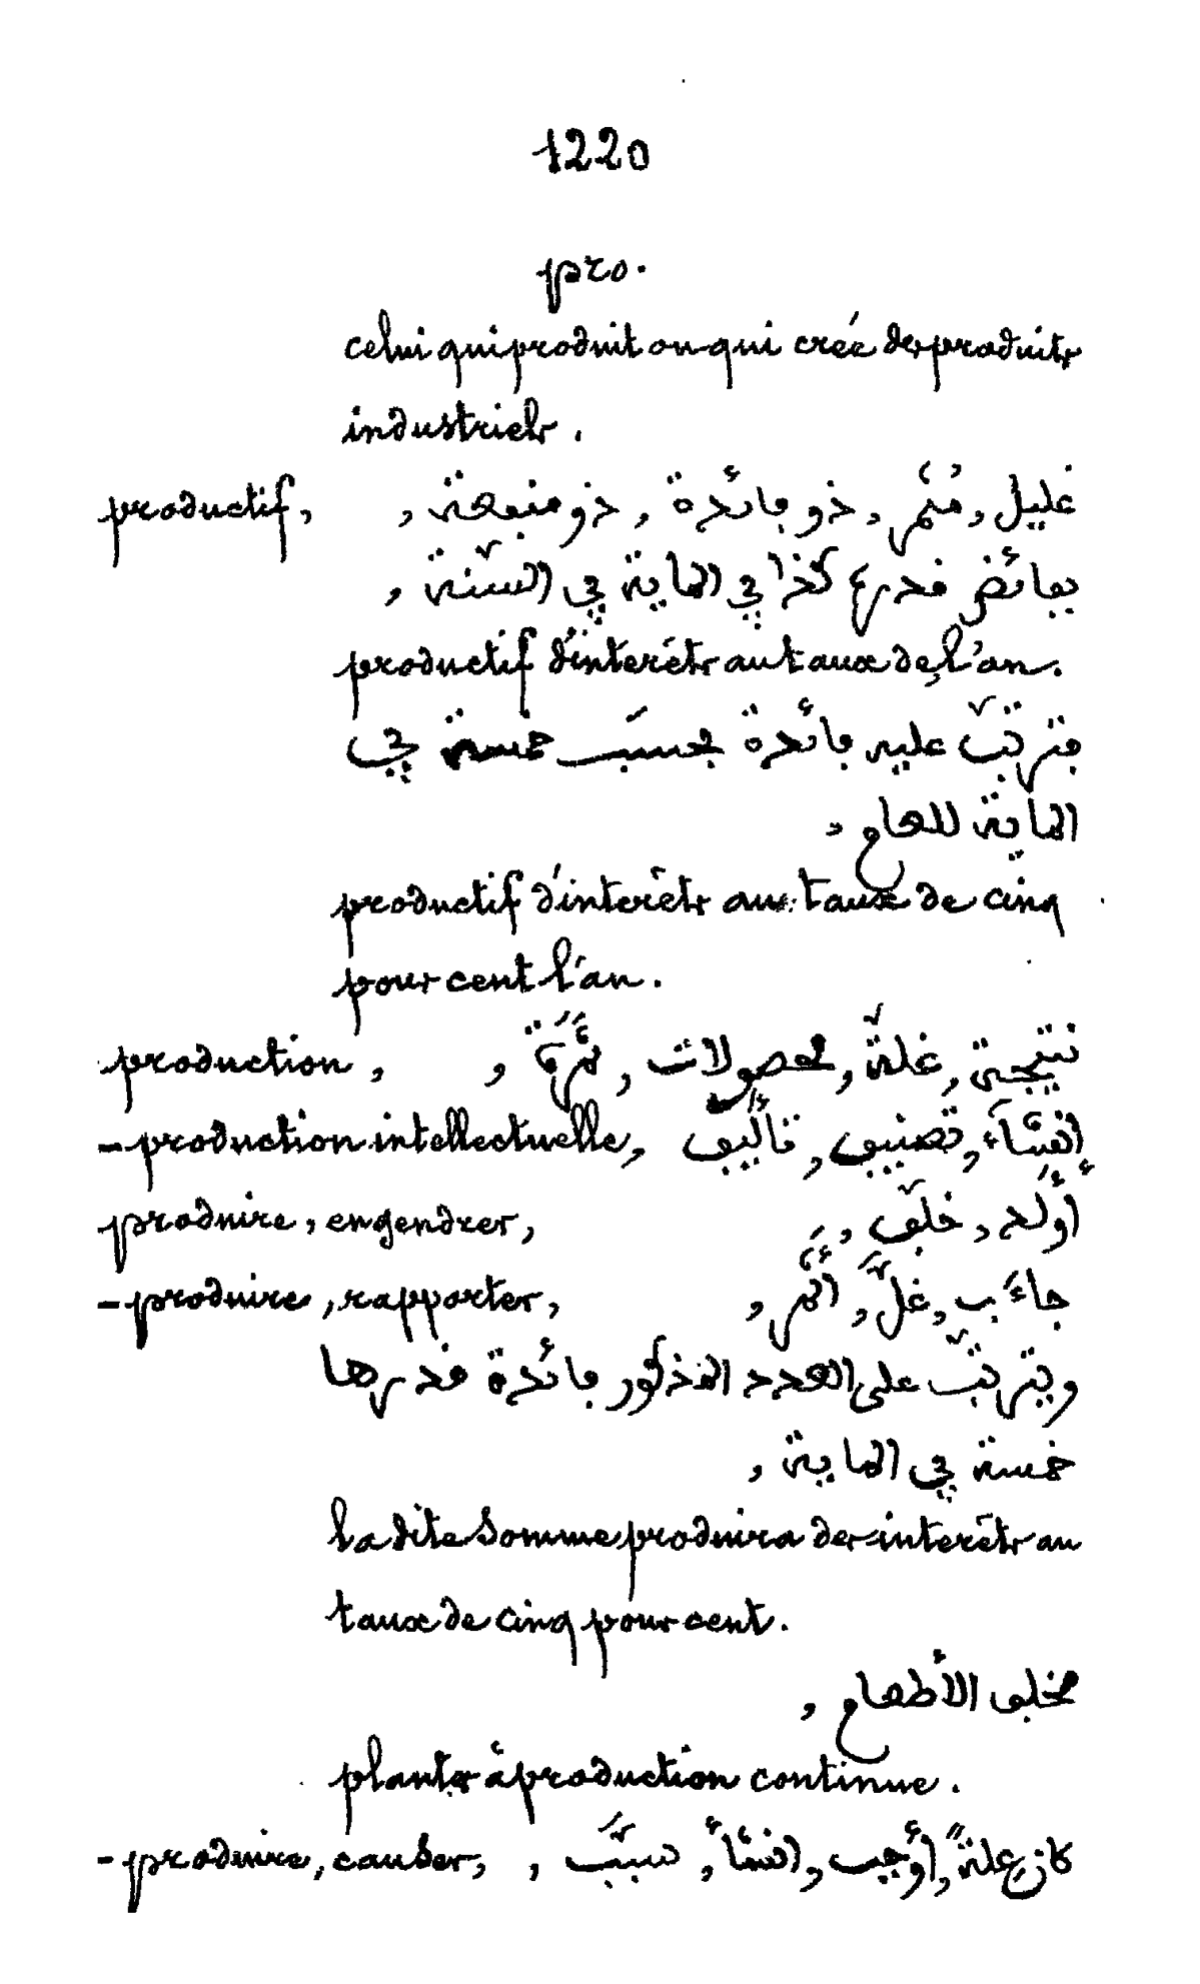 1220
pro.
celui qui produit ou qui crée des produits
industriels.
productif, غليل, مُثْمِر, ذو فائدة, ذو منفعة,
بفائض قدرها كذا في الماية في السّنة,
productif d'intérêts au taux de, l'an.
مترتّب عليه فائدة بحسَب خمسة في
الماية للعام,
productif d'intérêts au taux de cinq
pour cent l'an.
production, نتيجة, غلّة, محصولات, ثَمَرَة,
- production intellectuelle, إنشَاء, تصنيف, تأليف
produire, engendrer, أوْلد, خلّف,
- produire, rapporter, جاءَ ب, غلَّ, أثْمَر,
ويترتّب على العدد المذكور فائدة قدرها
خمسة في الماية,
la dite somme produira des intérêts au
taux de cinq pour cent.
مخلف الأطعام,
plantes à production continue.
- produire, causer, كان علةً, أوجب, انشأ, سبَّب,